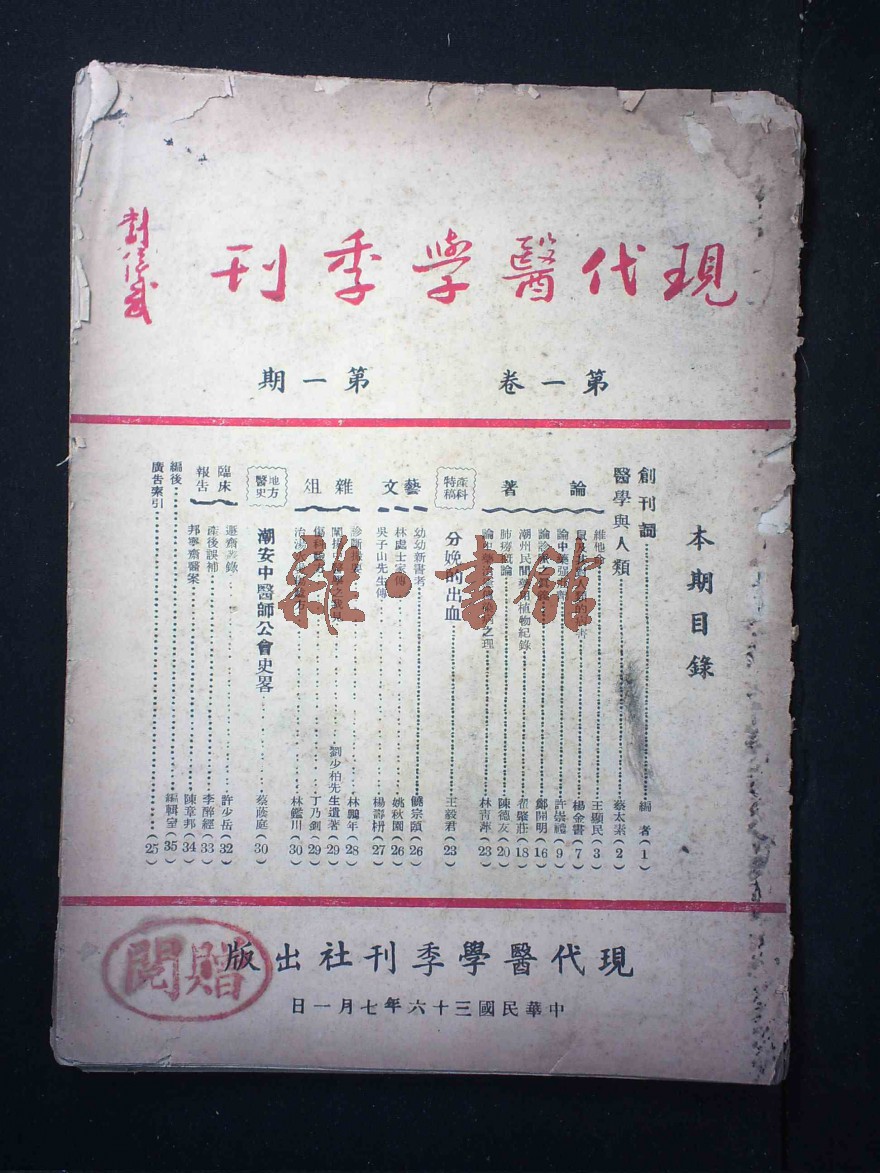 現代醫學季刊
第一卷 第一期
本期目錄
創刊詞 編者(1)
醫學與人類 蔡太素(2)
論著
維他 王顯民(3)
楊金書(7)
論中藥 許崇禮(9)
論診 鄭開明(16)
潮州民間 植物紀錄 翟肇莊(18)
肺癆概論 陳德友(20)
之理 林青萍(23)
產科特稿
分娩的出血 王毅君(23)
藝文
幼幼新書考 饒宗頤(26)
林處士家傳 姚秋園(26)
吳子山先生傳 楊壽枬(27)
雜俎
診斷 林鵬年(28)
之我見 劉少柏先生遺著(29)
傷科 丁乃劍(29)
治 林鑑川(30)
地方醫史
潮安中醫師公會史畧 蔡蔭庭(30)
臨床報告
錄 許少岳(32)
產後誤補 李醉經(33)
邦寧齋醫案 陳葦邦(34)
編後 編輯室(35)
廣告索引 (25)
現代醫學季刊社出版
中華民國三十六年七月一日
贈閱
雜·書館